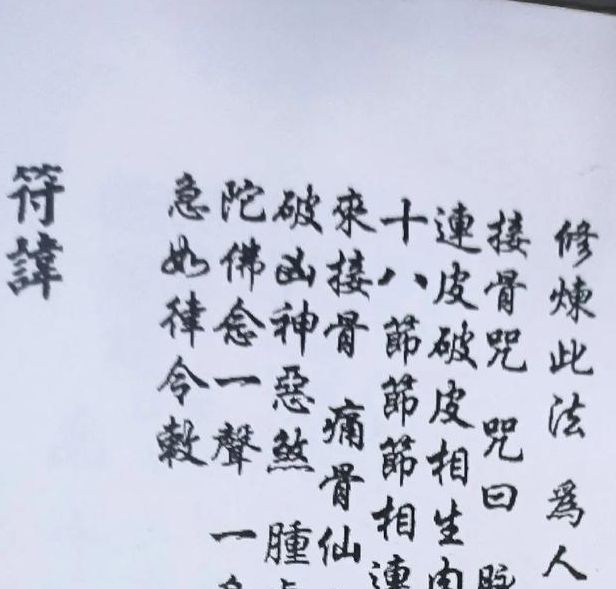 修煉此法 為人
接骨咒 咒曰
連皮破皮相生肉
十八節節節相連
來接骨 痛骨仙
破凶神惡煞 腫
陀佛念一聲 一
急如律令敕
符諱